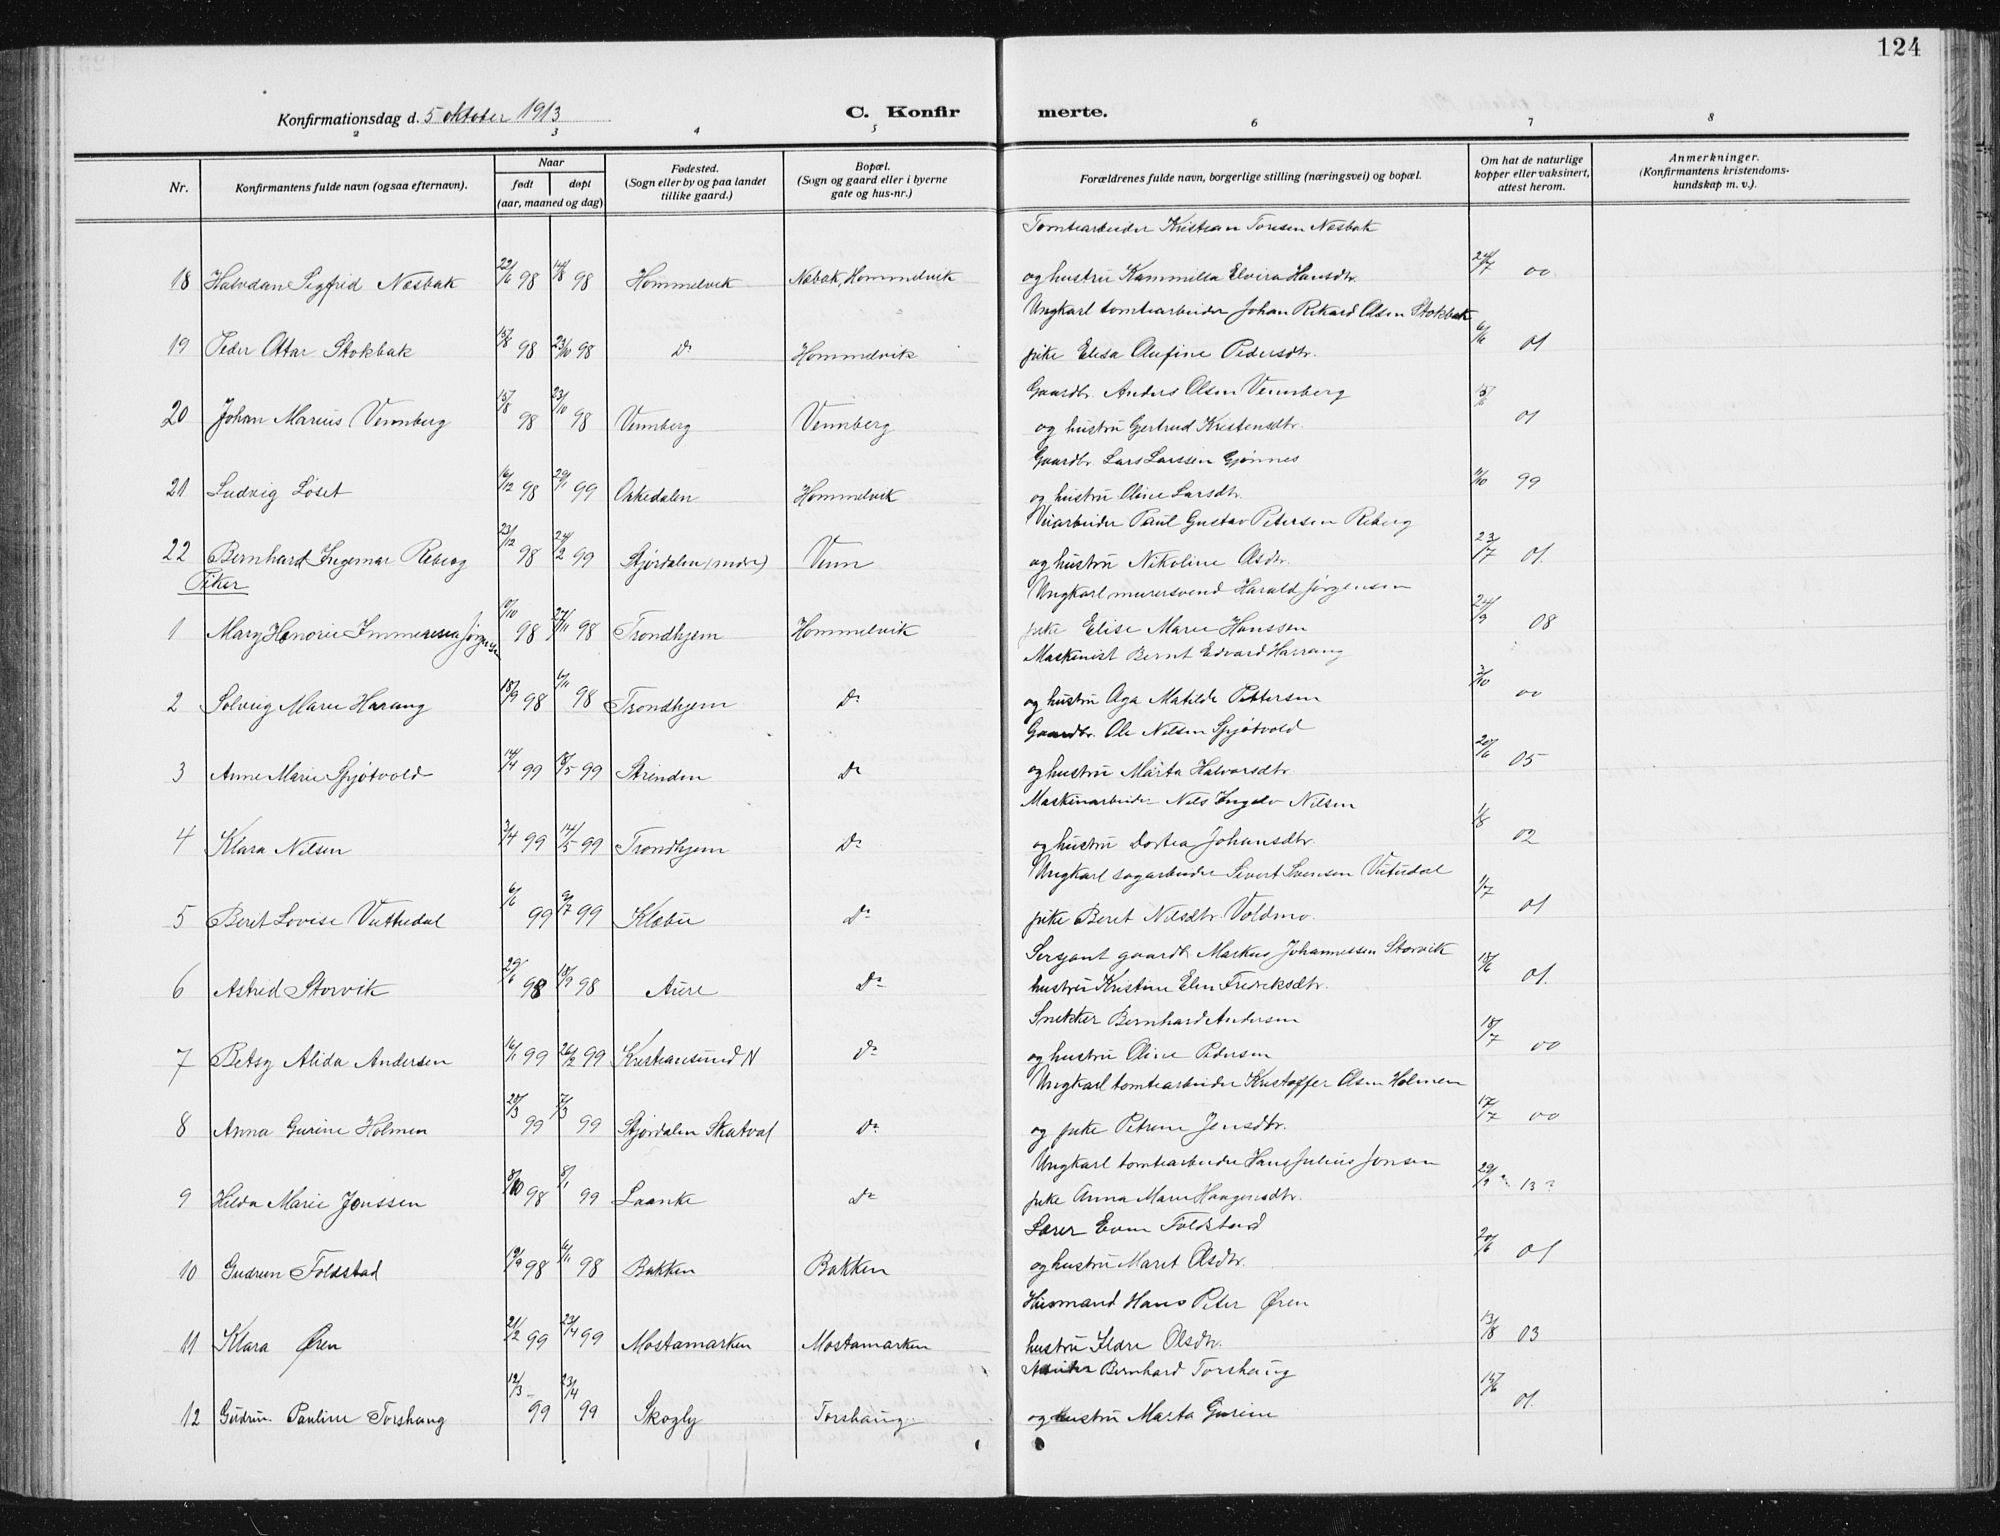 124
Konfirmationsdag d. 5 oktober 1913
C. Konfirmerte.
2 3 4 5 6 7 8
Nr.
Konfirmantens fulde navn (ogsaa efternavn).
Naar
født døpt
(aar, maaned og dag)
Fødested.
(Sogn eller by og paa landet
tillike gaard.)
Bopæl.
(Sogn og gaard eller i byerne
gate og hus-nr.)
Forældrenes fulde navn, borgerlige stilling (næringsvei) og bopæl.
Om hat de naturlige
kopper eller vaksinert,
attest herom.
Anmerkninger.
(Konfirmantens kristendoms-
kundskap m. v.).
Tomtearbeider Kristian Toresen Næsbak
18 Halvdan Sigfrid Næsbak 22/6 98 14/8 98 Hommelvik Næbak, Hommelvik og hustru Kammilla Elvira Hansdtr. 24/7 00
Ungkarl tomtearbeider Johan Rikard Olsen Stokbak
19 Peder Ottar Stokbak 15/8 98 23/10 98 Do Hommelvik pike Elisa Aufine Pedersdtr. 6/6 01
Gaardbr. Anders Olsen Vennberg
20 Johan Marius Vennberg 15/8 98 23/10 98 Vennberg Vennberg og hustru Gertrud Kristensdtr. 01
Gaardbr. Lars Larssen Gjønnes
21 Ludvig Løset 16/12 98 29/1 99 Orkedalen Hommelvik og hustru Oline Larsdtr. 11/10 99
Veiarbeider Paul Gustav Petersen Reberg
22 Bernhard Ingemar Reberg 23/12 98 24/2 99 Stjørdalen (nedre) Venn og hustru Nikoline Olsdtr. 23/7 01.
Piker
Ungkarl murersvend Harald Jørgensen
1 Mary Honorie Immeresia Jørgensen 10/10 98 27/11 98 Trondhjem Hommelvik pike Elise Marie Hanssen 24/9 08
Maskinist Bernt Edvard Harrang
2 Solveig Marie Harang 18/9 98 6/11 98 Trondhjem Do og hustru Aga Matilde Pettersen 3/10 00
Gaardbr. Ole Nilsen Spjøtvold
3 Anne Marie Spjøtvold 14/4 99 18/5 99 Strinden Do og hustru Märta Halvorsdtr. 20/6 05
Maskinarbeider Nils Ingelv Nilsen
4 Klara Nilsen 3/4 99 14/5 99 Trondhjem Do og hustru Dortea Johansdtr. 1/8 02
Ungkarl sagarbeider Sivert Svensen Vutudal
5 Beret Lovise Vuttudal 6/6 99 9/7 99 Klæbu Do pike Beret Nilsdtr. Voldmo. 1/7 01
Sersjant gaardb. Markus Johannessen Storvik
6 Astrid Storvik 29/6 98 18/9 98 Aure Do hustru Kristine Elen Fredriksdtr. 18/6 01.
Snekker Bernhard Andersen
7 Betsy Alida Andersen 16/1 99 26/2 99 Kristiansund N Do og hustru Oline Pedersen 18/7 00
Ungkarl tomtearbeider Kristoffer Olsen Holmen
8 Anna Gurine Holmen 20/3 99 7/3 99 Stjørdalen Skatval Do og pike Petrine Jensdtr. 17/7 00
Ungkarl tomtearbeider Hans Julius Jonsen
9 Hilda Marie Jonssen 8/10 98 8/1 99 Laanke Do pike Anna Marie Haagensdtr. 29/9 13
Lærer Even Foldstad
10 Gudrun Foldstad 19/9 98 6/11 98 Bakken Bakken og hustru Maret Olsdtr. 20/6 01
Husmand Hans Peter Øren
11 Klara Øren 21/2 99 23/4 99 Mostamarken Mostamarken hustru Ildre Olsdtr. 13/8 03
Bernhard Torshaug
12 Gudrun Pauline Torshaug 12/3 99 23/4 99 Skogly Torshaug. og hustru Marta Gurine 15/6 01.